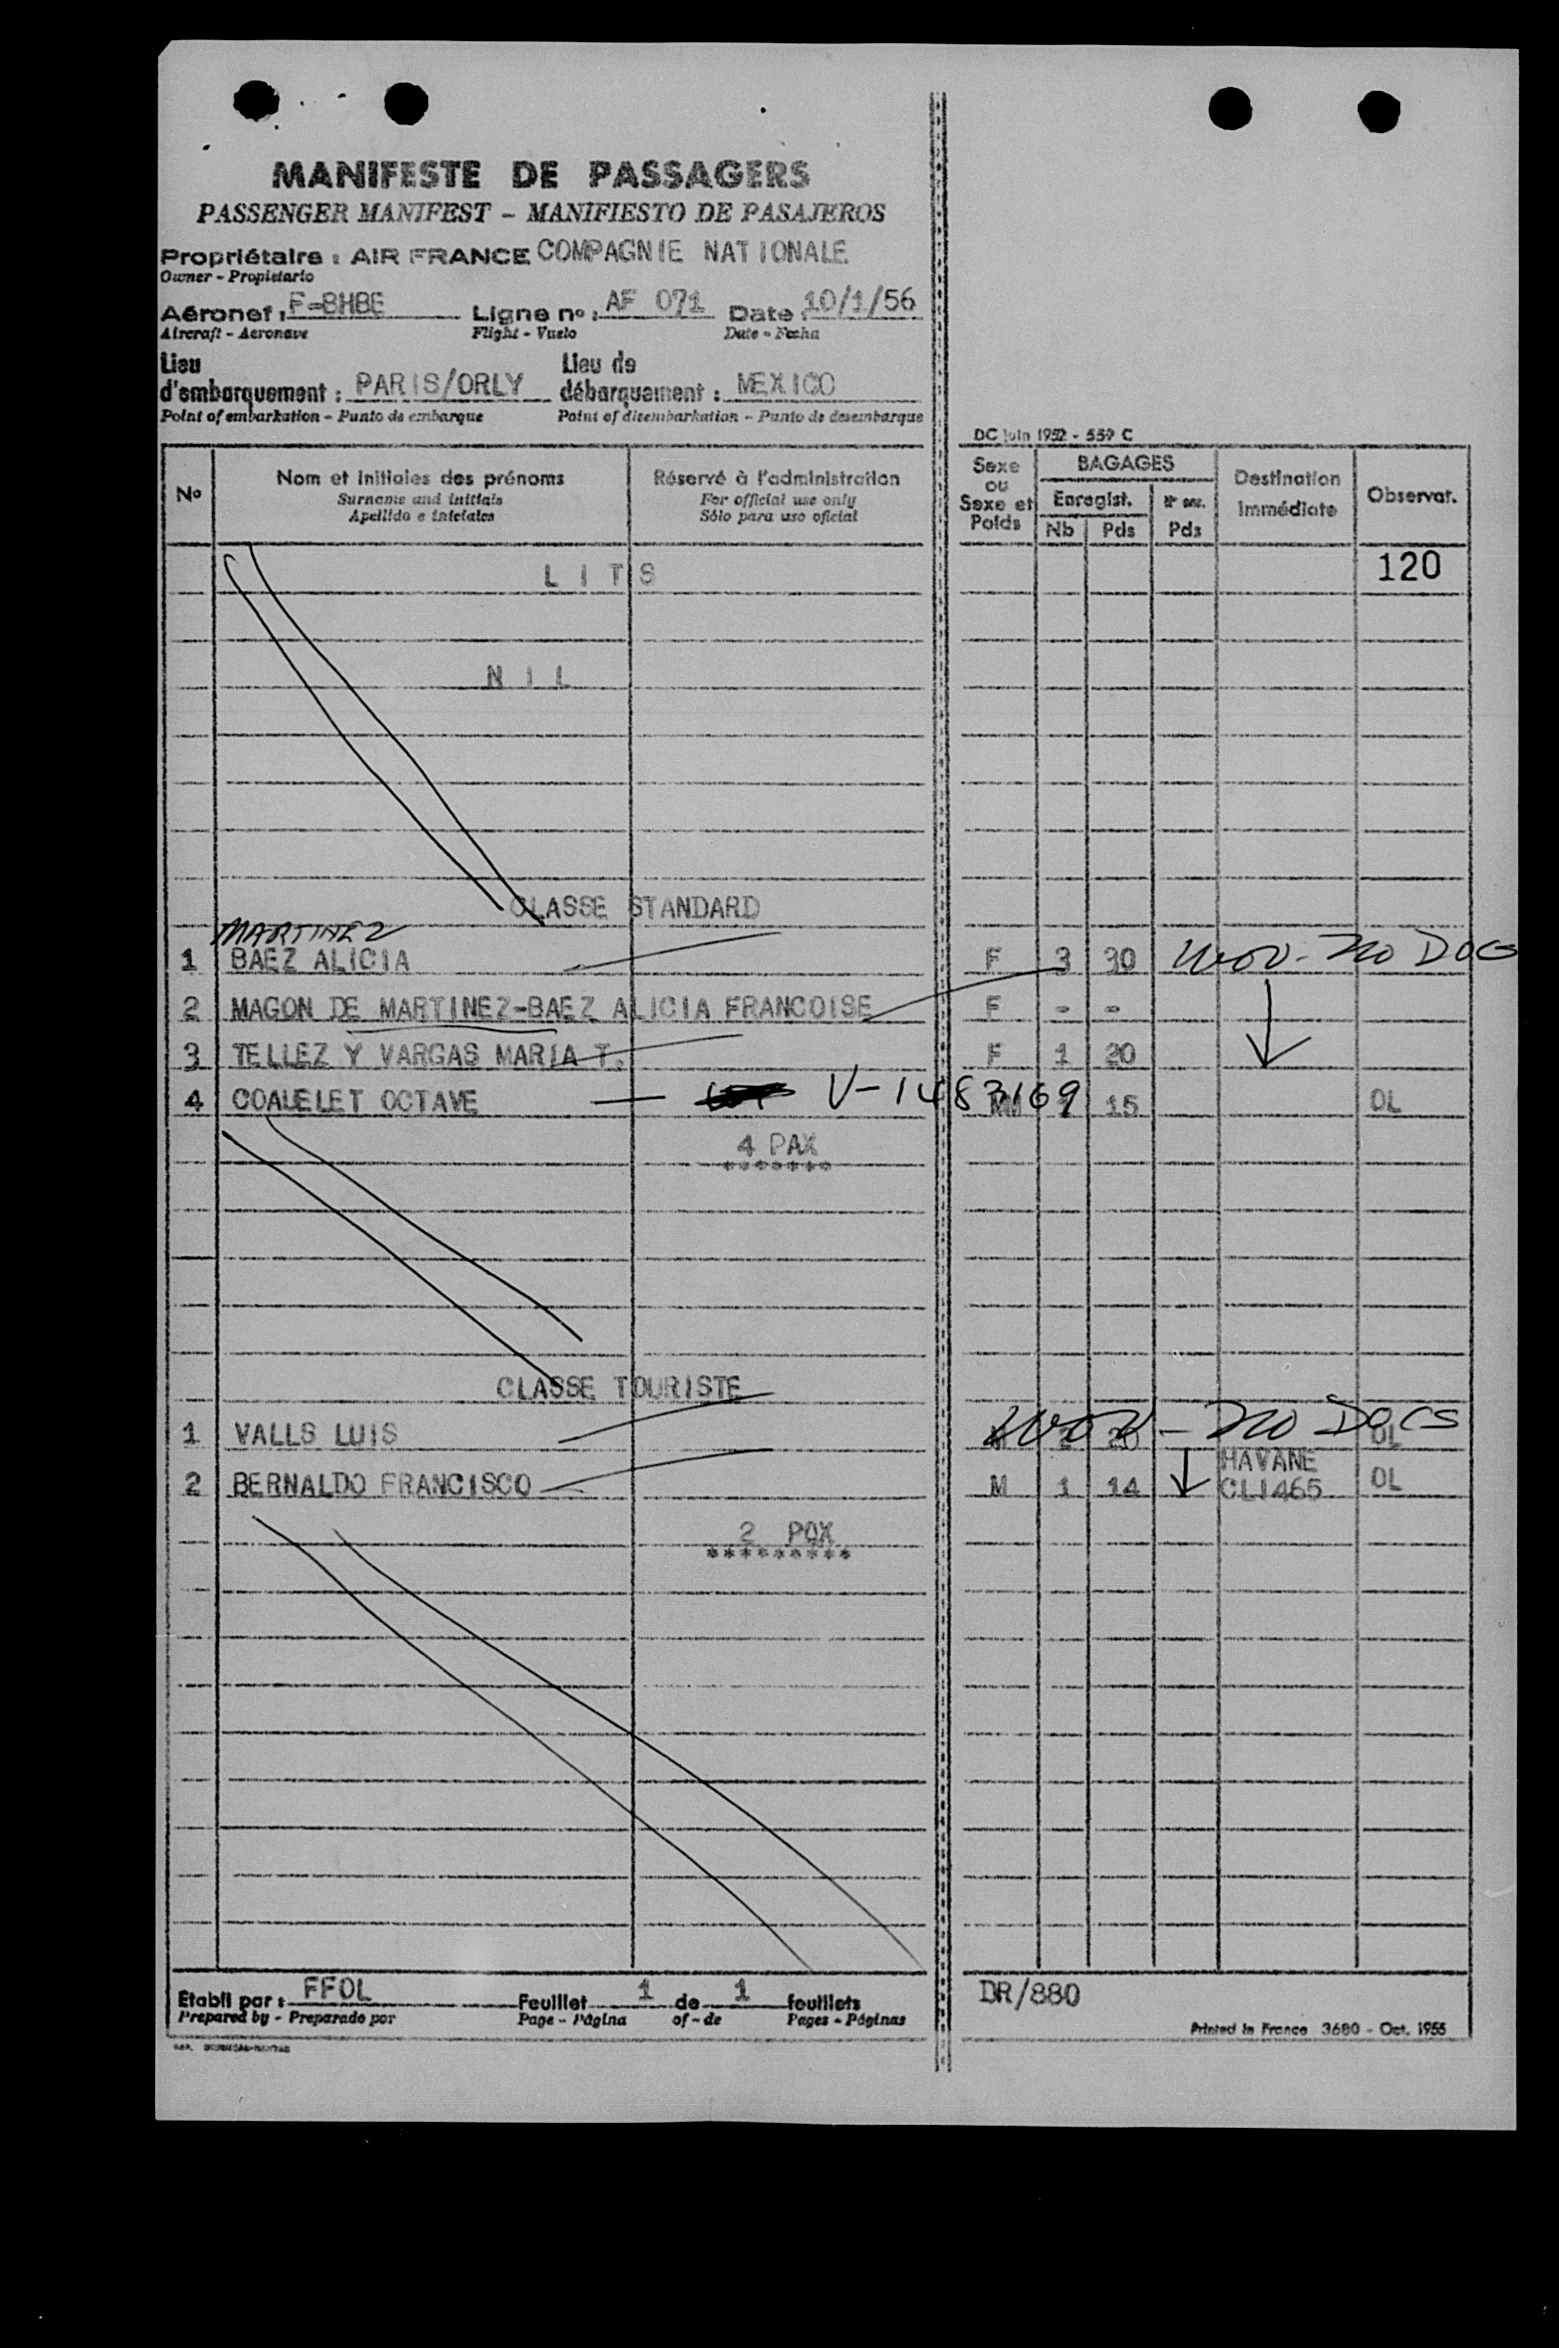 MANIFESTE DE PASSAGERS
PASSENGER MANIFEST - MANIFIESTO DE PASAJEROS
Propriétaire : AIR FRANCE COMPAGNIE NATIONALE
Owner - Propietario
Aéronef : F-BHBE Ligne no : AF 071 Date : 10/1/56
Aircraft - Aeronave Flight - Vuelo Date - Fecha
Lieu d'embarquement : PARIS/ORLY Lieu de débarquement : MEXICO
Point of embarkation - Punto de embarque Point of disembarkation - Punto de desembarque
DC juin 1952 - 559 C
No Nom et initiales des prénoms Réservé à l'administration Sexe ou Sexe et Poids BAGAGES Destination immédiate Observat.
Surname and initials For official use only Enregist.
Apellido e iniciales Sólo para uso oficial Nb Pds Pds
LITS 120
NIL
CLASSE STANDARD
MARTINEZ
1 BAEZ ALICIA F 3 30 WOV - NO DOCS
2 MAGON DE MARTINEZ-BAEZ ALICIA FRANCOISE F - -
3 TELLEZ Y VARGAS MARIA T. F 1 20
4 COALELET OCTAVE V-1483169 15 OL
4 PAX
*******
CLASSE TOURISTE
1 VALLS LUIS WOV - NO DOCS OL
2 BERNALDO FRANCISCO M 1 14 HAVANE CL1465 OL
2 POX
*********
Etabli par : FFOL Feuillet 1 de 1 feuillets DR/880
Prepared by - Preparado por Page - Página of - de Pages - Páginas
Printed in France 3680 - Oct. 1955